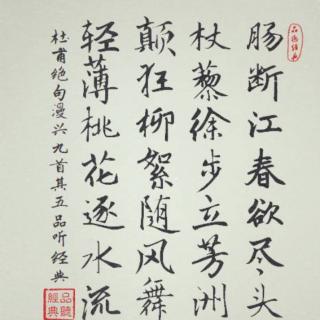 肠断江春欲尽头
杖藜徐步立芳洲
颠狂柳絮随风舞
轻薄桃花逐水流
杜甫绝句漫兴九首其五品听经典
品聽
經典